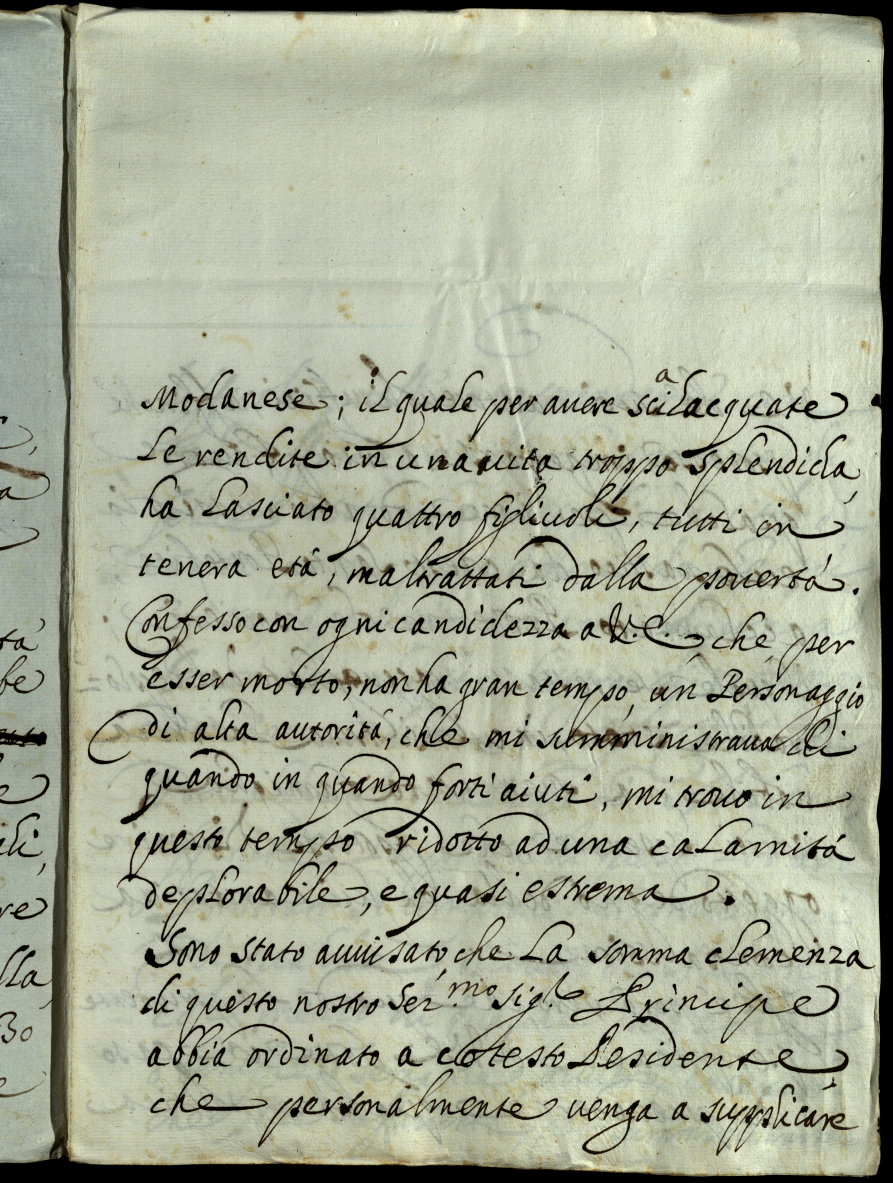 Modanese; il quale per avere scialacquate
le rendite in una vita troppo splendida,
ha lasciato quattro figliuoli, tutti in
tenera età, maltrattati dalla povertà.
Confesso con ogni candidezza a V.E., che per
esser morto, non ha gran tempo, un Personaggio
di alta autorità, che mi somministrava di
quando in quando forti aiuti, mi trovo in
questo tempo ridotto ad una calamità
deplorabile, e quasi estrema.
Sono stato avvisato, che la somma clemenza
di questo nostro Ser.mo Sig.r Principe
abbia ordinato a cotesto Residente
che personalmente venga a supplicare
ta
be
e
di,
re
lla,
Bo
e